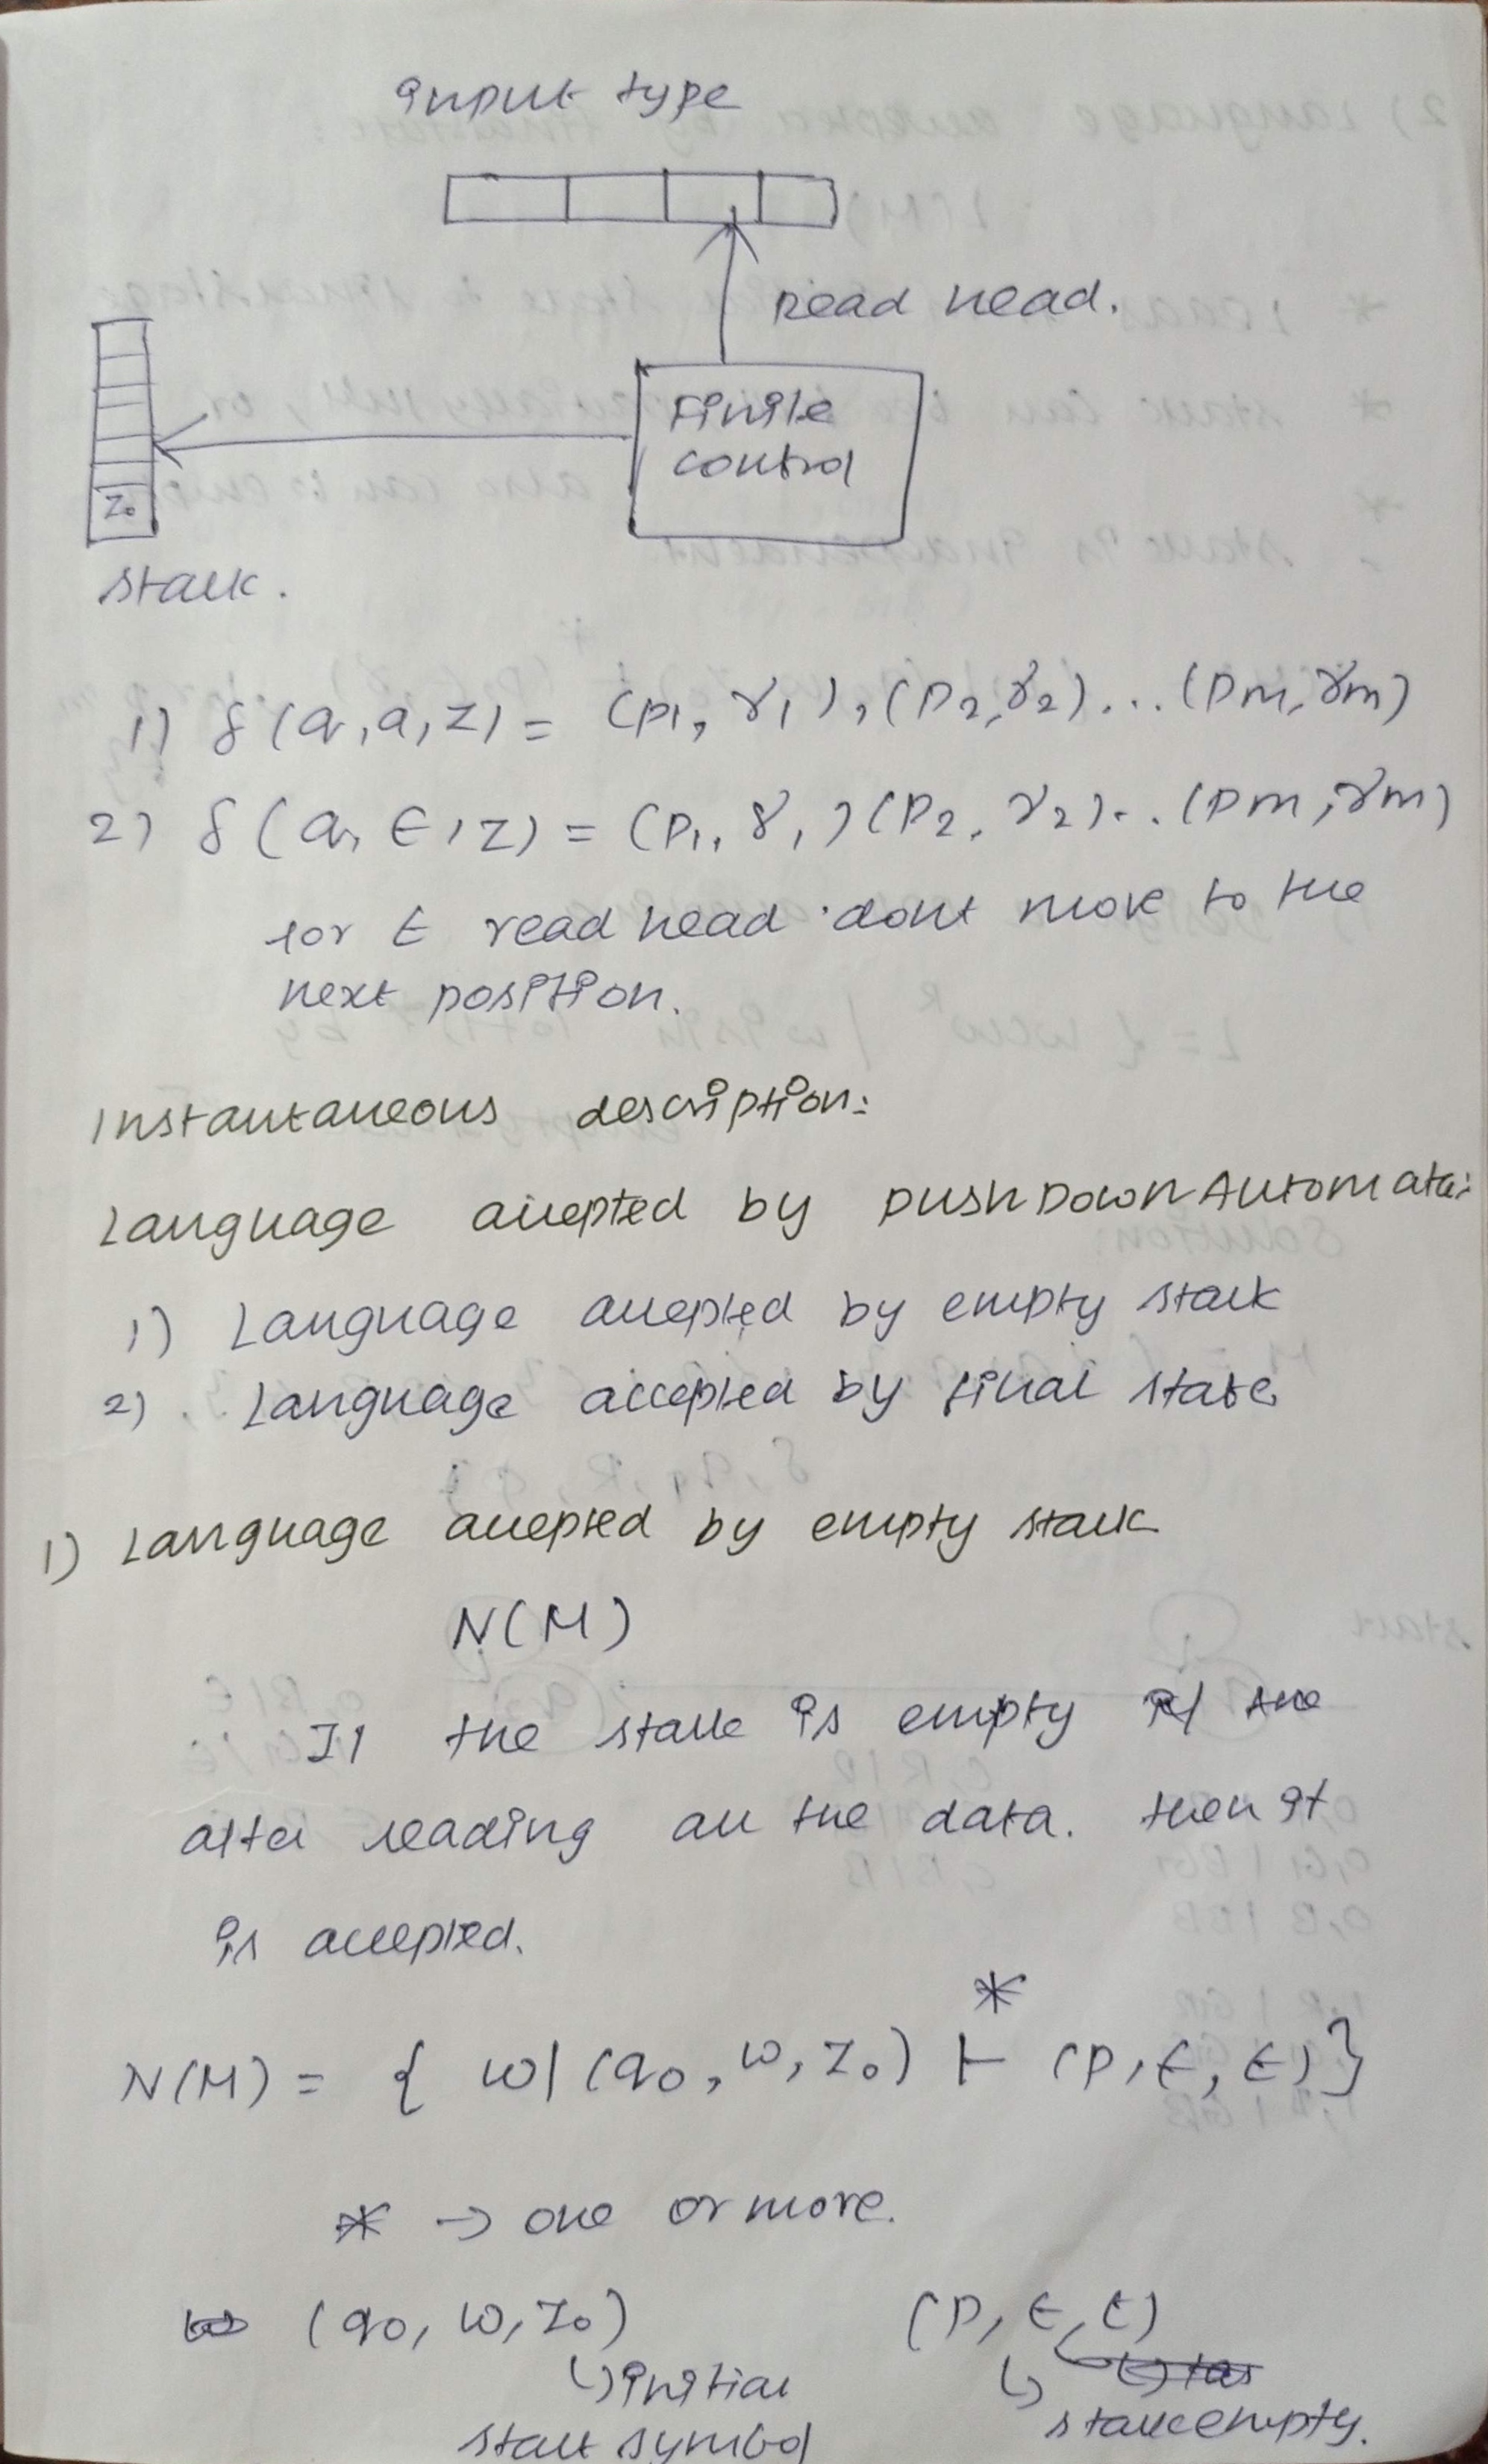 input type
read head.
Finite
control
Z₀
stack.
1) δ(q, a, z) = (p₁, γ₁), (p₂, γ₂)... (pm, γm)
2) δ(q, ε, z) = (p₁, γ₁)(p₂, γ₂)-. (pm, γm)
for ε read head dont move to the
next position.
Instantaneous description:
Language accepted by PushDown Automata:
1) Language accepted by empty stack
2) Language accepted by final state
1) Language accepted by empty stack
N(M)
If the stack is empty the
after reading all the data. then it
is accepted.
*
N(M) = { w | (q₀, w, z₀) ⊢ (p, ε, ε)}
* → one or more.
(q₀, w, z₀) (p, ε, ε)
↳ initial ↳
stack symbol stack empty.